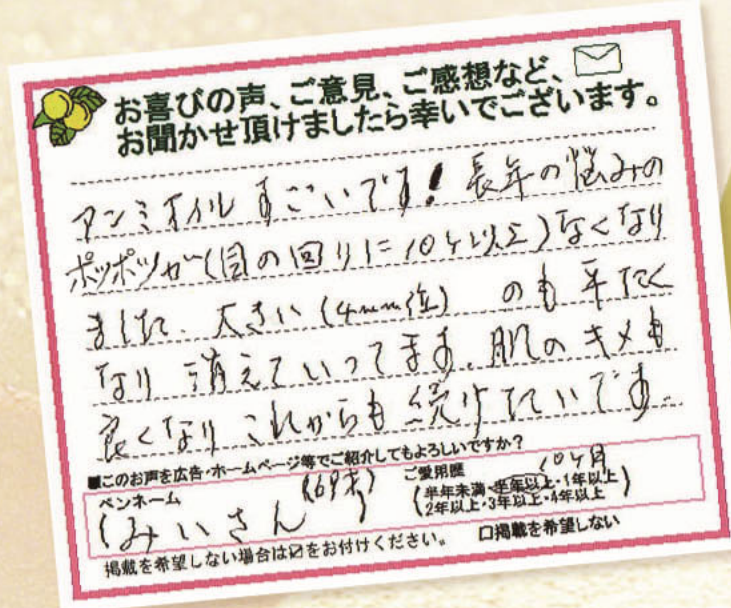 お喜びの声、ご意見、ご感想など、
お聞かせ頂けましたら幸いでございます。
アンミオイルすごいです!長年の悩みの
ポツポツが(目の回りに10ケ以上)なくなり
ました、大きい(4mm位) のも平たく
なり消えていってます。肌のキメも
良くなりこれからも続けたいです。
■このお声を広告・ホームページ等でご紹介してもよろしいですか?
ペンネーム
みいさん (69才)
ご愛用歴 10ケ月
(半年未満・半年以上・1年以上
2年以上・3年以上・4年以上)
掲載を希望しない場合は☑をお付けください。 □掲載を希望しない